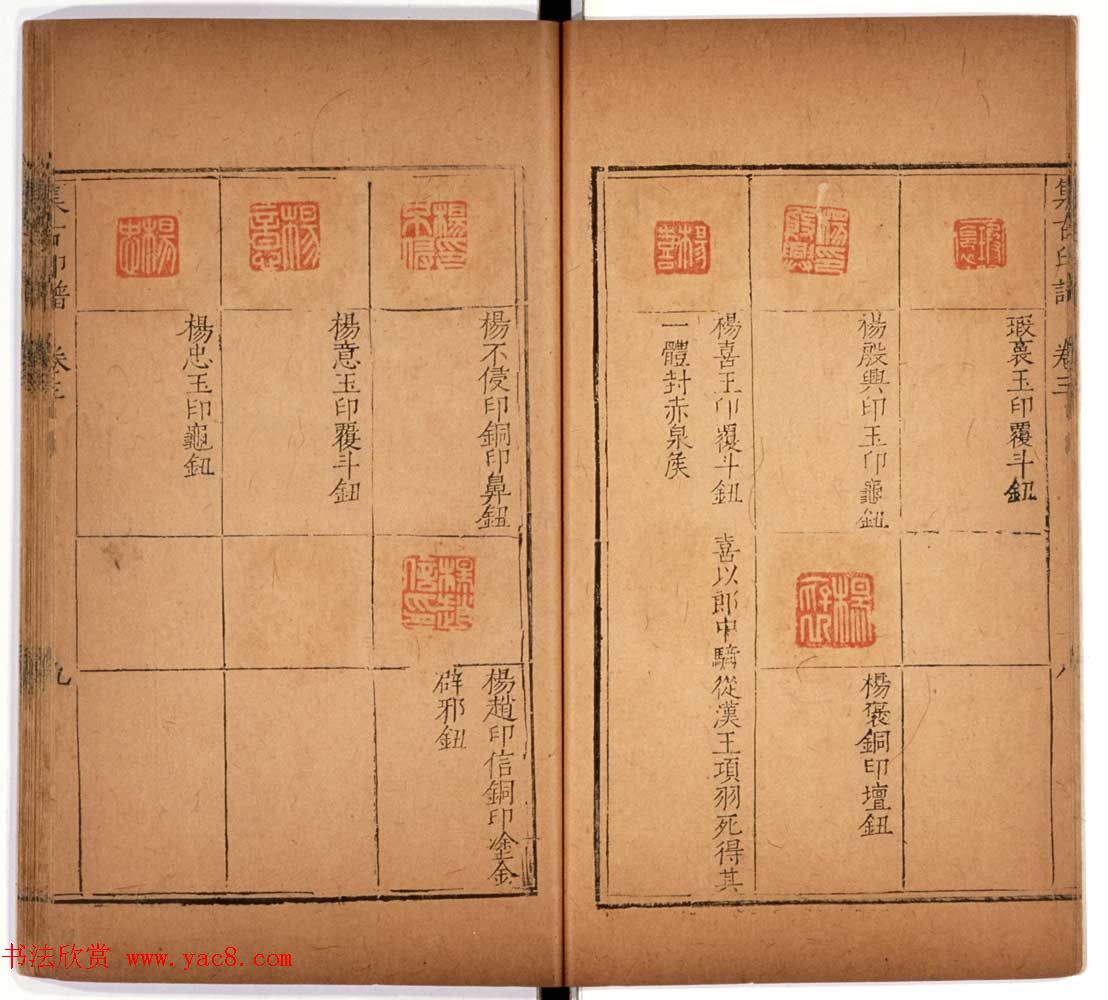 集古印譜 卷三 八
瑕裏玉印覆斗鈕
楊殷興印玉印龜鈕
楊褒銅印壇鈕
楊喜玉印覆斗鈕 喜以郎中騎從漢王項羽死得其
一體封赤泉矦
楊不侵印銅印鼻鈕
楊趙印信銅印塗金
辟邪鈕
楊意玉印覆斗鈕
楊忠玉印龜鈕
集古印譜 卷三 九
书法欣赏 www.yac8.com